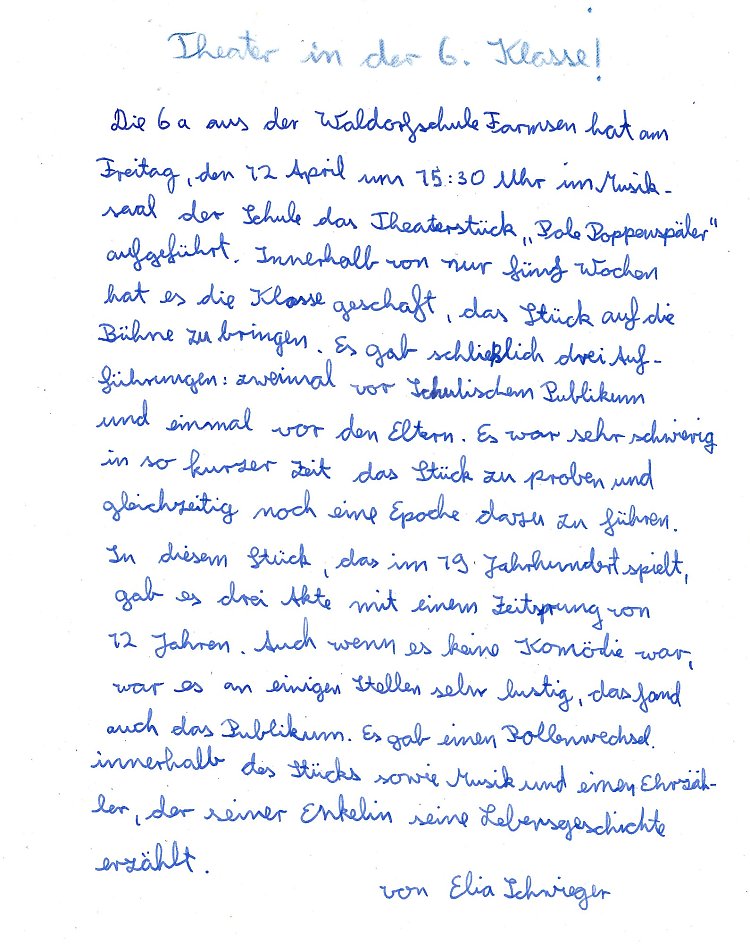 Theater in der 6. Klasse!
Die 6a aus der Waldorfschule Farmsen hat am
Freitag, den 12 April um 15:30 Uhr im Musik-
saal der Schule das Theaterstück „Pole Poppenspäler"
aufgeführt. Innerhalb von nur fünf Wochen
hat es die Klasse geschaft, das Stück auf die
Bühne zu bringen. Es gab schließlich drei Auf-
führungen: zweimal vor Schulischem Publikum
und einmal vor den Eltern. Es war sehr schwierig
in so kurzer Zeit das Stück zu proben und
gleichzeitig noch eine Epoche dazu zu führen.
In diesem Stück, das im 19. Jahrhundert spielt,
gab es drei Akte mit einem Zeitsprung von
12 Jahren. Auch wenn es keine Komödie war,
war es an einigen Stellen sehr lustig, das fand
auch das Publikum. Es gab einen Rollenwechsel.
innerhalb des Stücks sowie Musik und einen Ehrzäh-
ler, der seiner Enkelin seine Lebensgeschichte
erzählt.
von Elia Schwieger